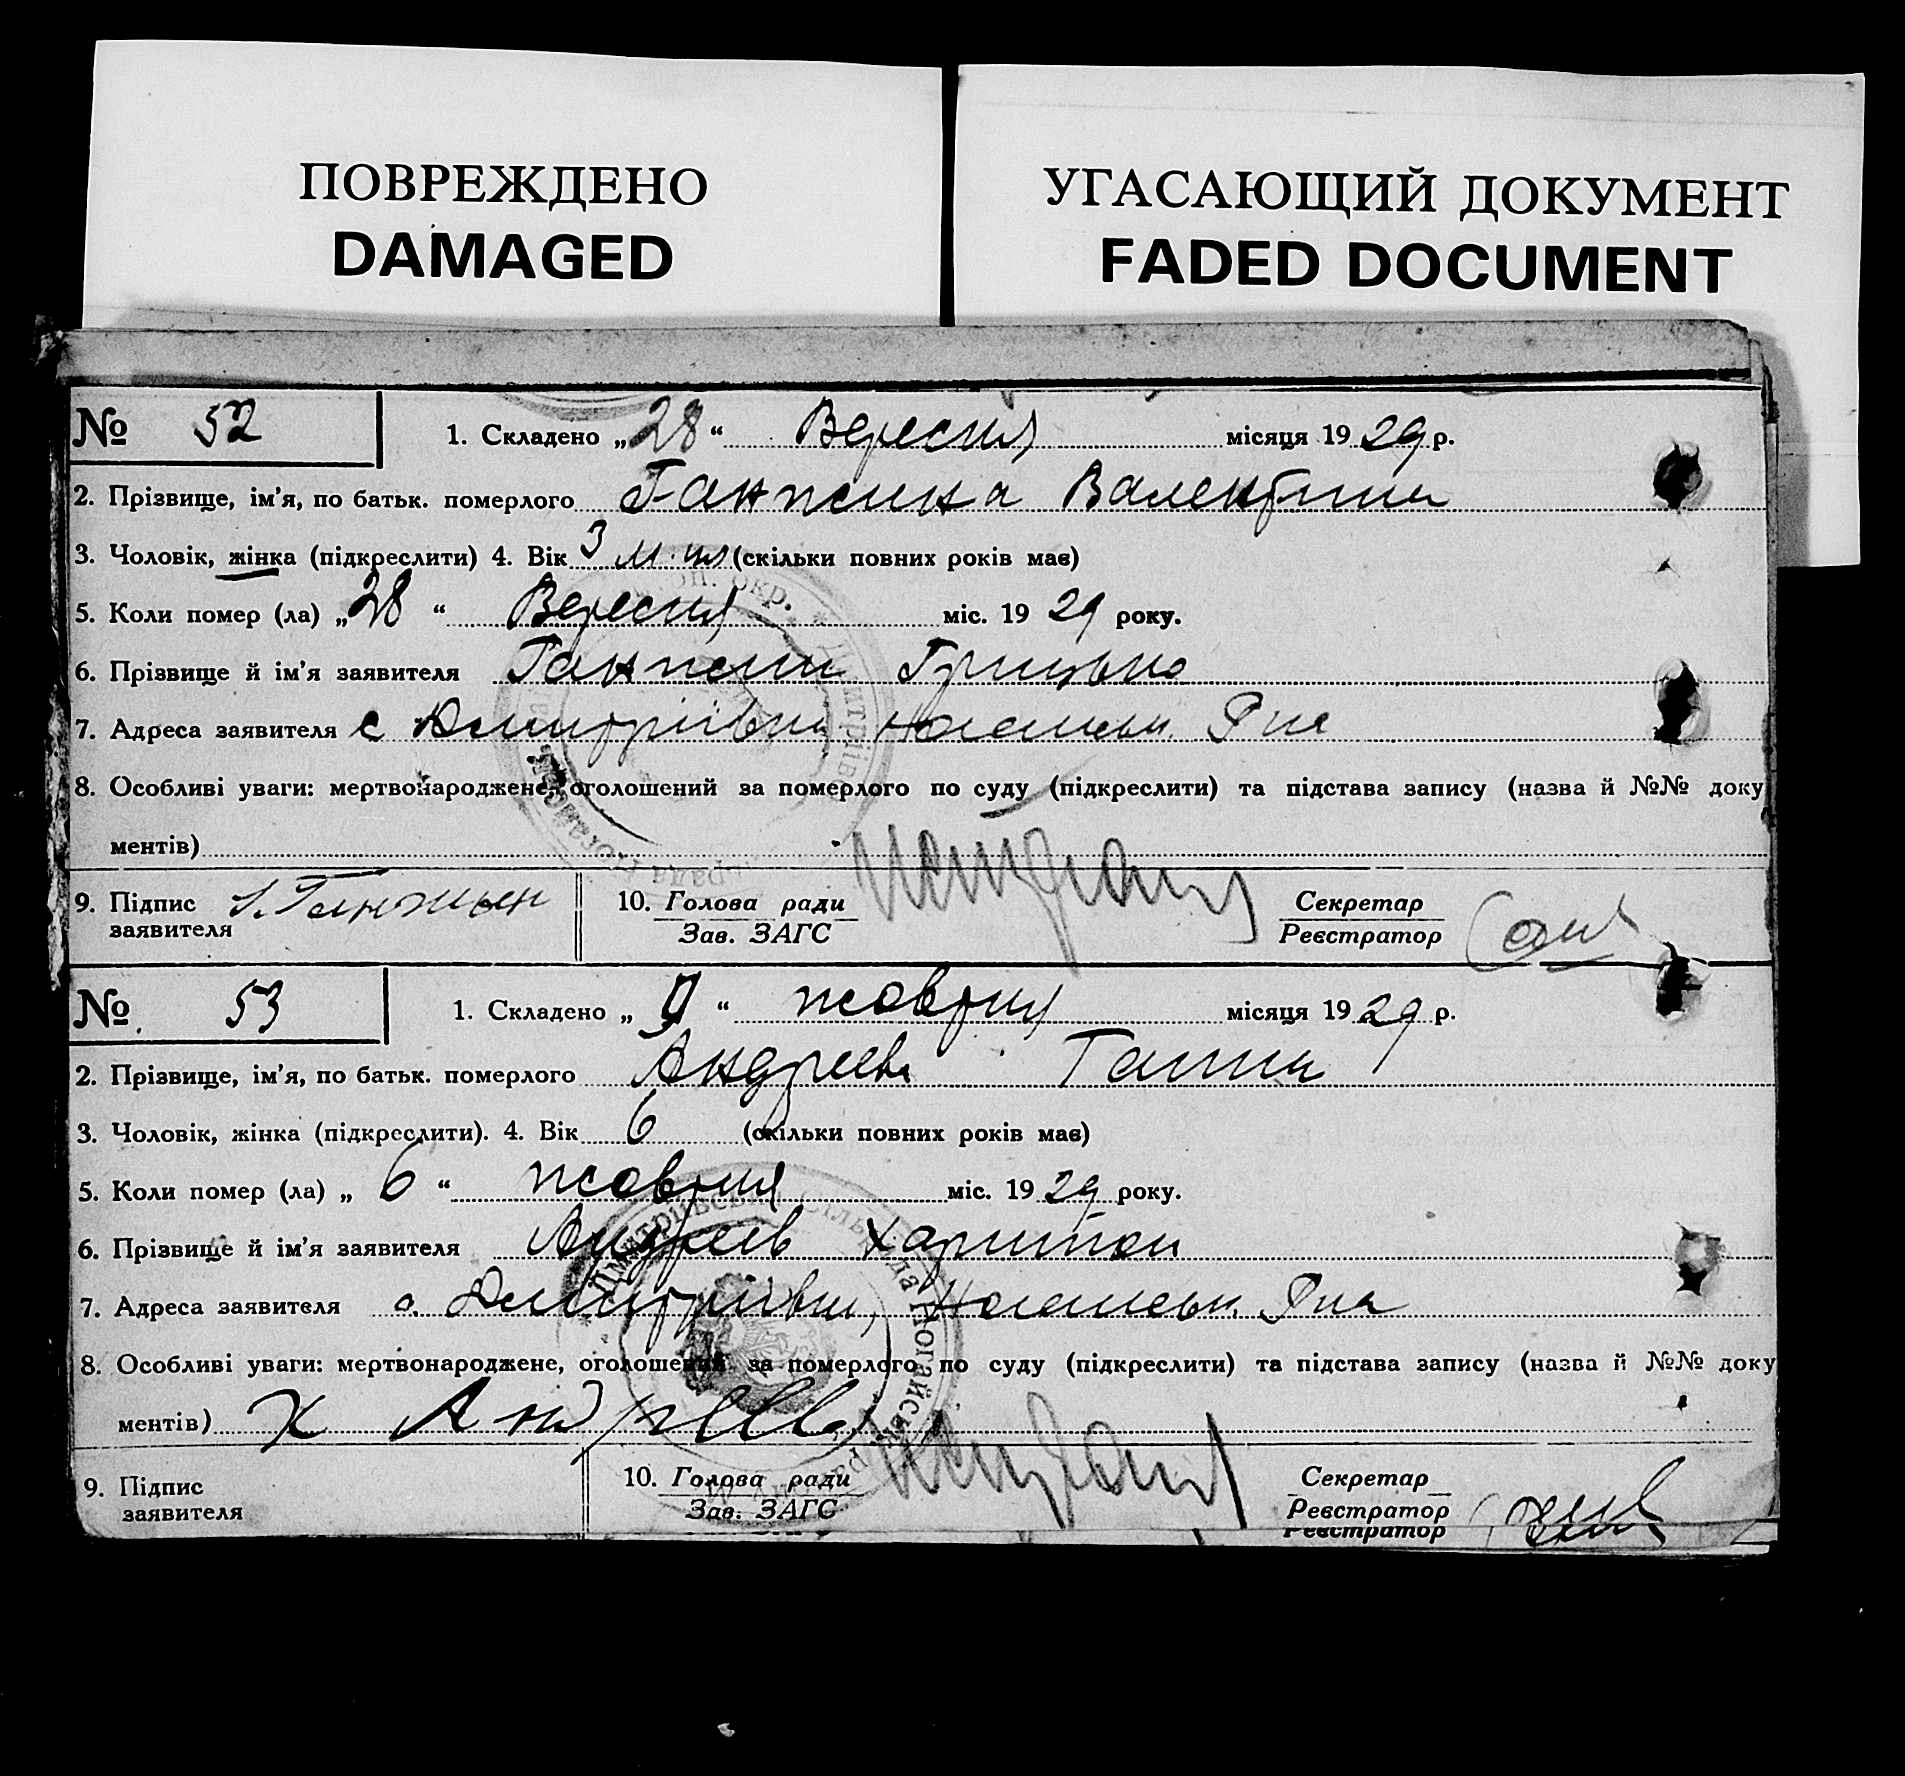 ПОВРЕЖДЕНО
DAMAGED
УГАСАЮЩИЙ ДОКУМЕНТ
FADED DOCUMENT
№ 52 1. Складено „28“ Вересня місяця 1929 р.
2. Прізвище, ім'я, по батьк. померлого Ганжина Валентина
3. Чоловік, жінка (підкреслити) 4. Вік 3 (скільки повних років має)
5. Коли помер (ла) „28“ Вересня міс. 1929 року.
6. Прізвище й ім'я заявителя Гринько
7. Адреса заявителя с Дмитріївки
8. Особливі уваги: мертвонароджене, оголошений за померлого по суду (підкреслити) та підстава запису (назва й №№ доку
ментів)
9. Підпис заявителя 10. Голова ради Зав. ЗАГС Секретар Реєстратор
№ 53 1. Складено „ “ жовтня місяця 1929 р.
2. Прізвище, ім'я, по батьк. померлого Андреева Ганна
3. Чоловік, жінка (підкреслити). 4. Вік 6 (скільки повних років має)
5. Коли помер (ла) „6“ жовтня міс. 1929 року.
6. Прізвище й ім'я заявителя Андреев Харитон
7. Адреса заявителя с. Дмитріївки,
8. Особливі уваги: мертвонароджене, оголошений за померлого по суду (підкреслити) та підстава запису (назва й №№ доку
ментів) Х Андреев
9. Підпис заявителя 10. Голова ради Зав. ЗАГС Секретар Реєстратор
Реєстратор